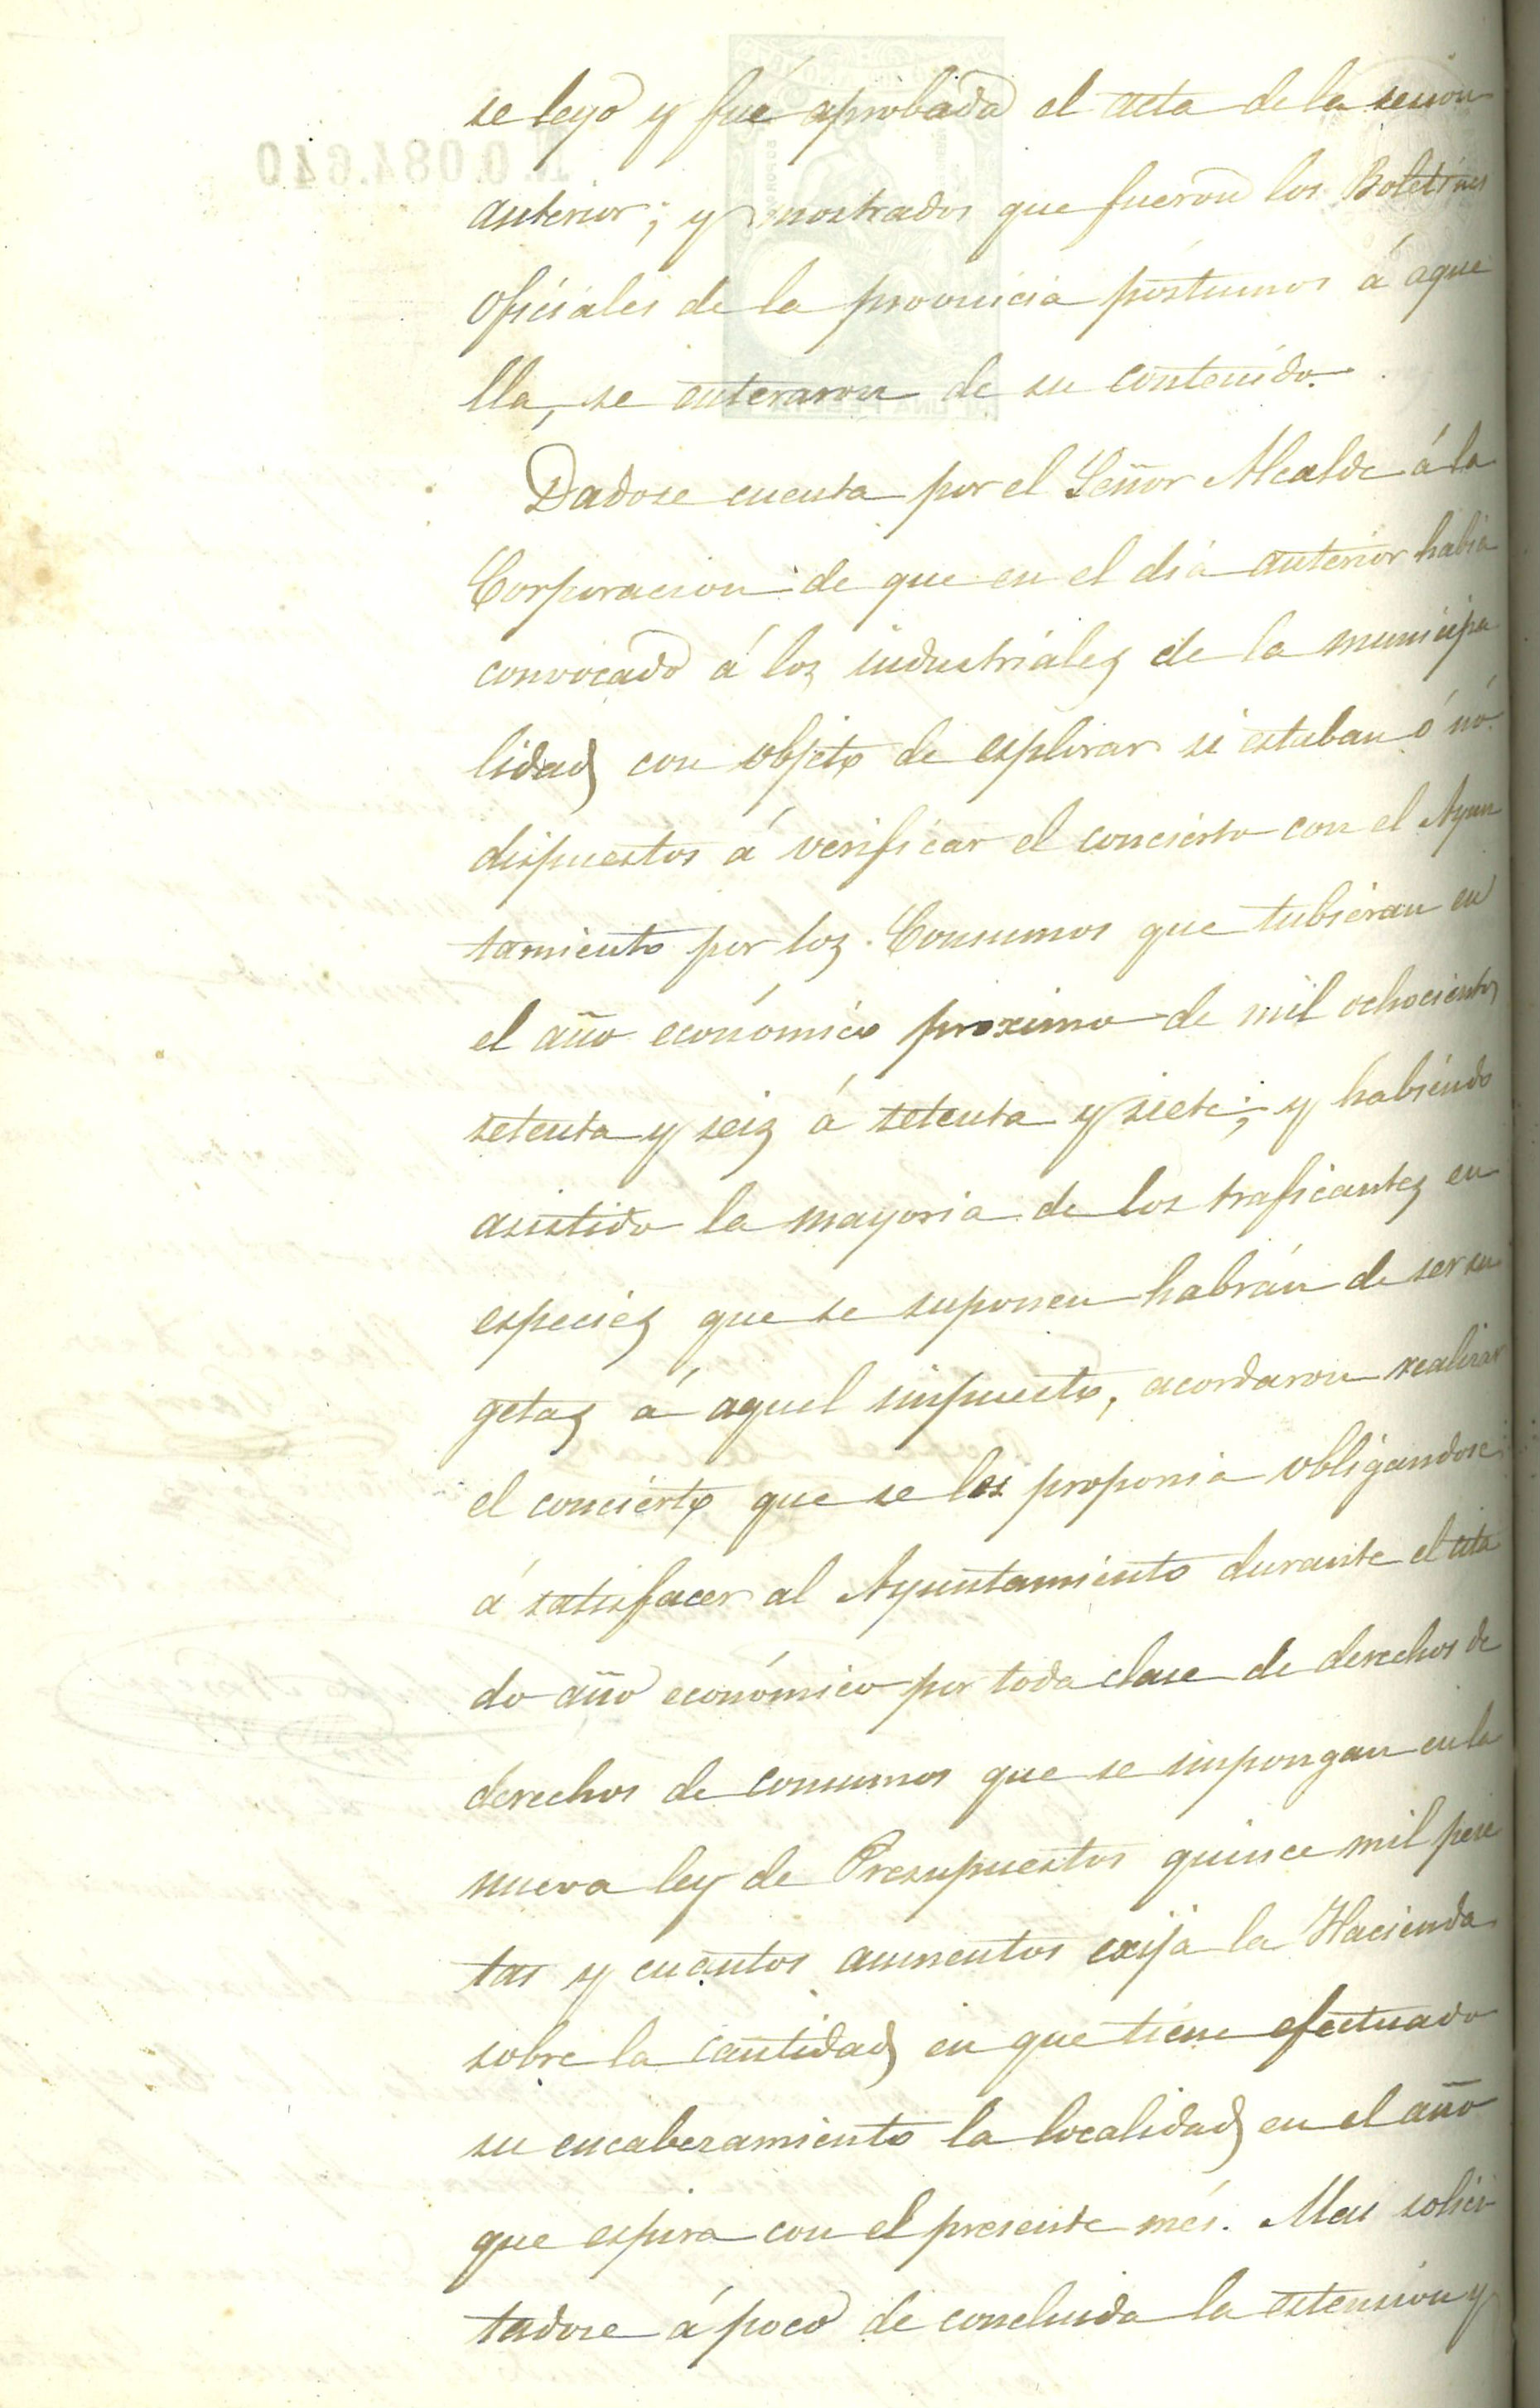 se leyo y fué aprobada el acta de la sesion
anterior; y mostrados que fueron los Boletines
Oficiales de la provincia póstumos á aque
lla, se enteraron de su contenido.
Dadose cuenta por el Señor Alcalde á la
Corporacion de que en el dia anterior habia
convocado á los industriales de la municipa
lidad con objeto de esplorar si estaban ó nó
dispuestos á verificar el concierto con el Ayun
tamiento por los Consumos que tubieran en
el año económico proximo de mil ochocientos
setenta y seis á setenta y siete; y habiendo
asistido la mayoria de los traficantes en
especies que se suponen habrán de ser su
getas á aquel impuesto, acordaron realizar
el concierto que se les proponia obligandose
á satisfacer al Ayuntamiento durante el cita
do año económico por toda clase de derechos de
derechos de consumos que se impongan en la
nueva ley de Presupuestos quince mil pese
tas y cuantos aumentos exija la Hacienda
sobre la cantidad en que tiene efectuado
su encabezamiento la localidad en el año
que espira con el presente més. Mas solici
tadose á poco de concluida la estension y
N.0.084.640
UNA PESETA